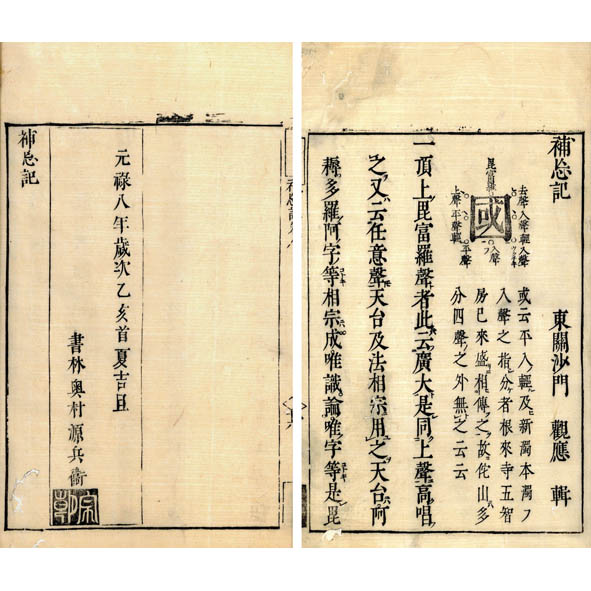 補忘記 東關沙門 觀應 輯
或云平入輕及新濁本濁ノ
入聲之指分者根來寺五智
房已來盛相傳之故侘山多
分四聲之外無之云云
去聲入聲輕入聲
國
毘富羅
上聲平聲輕
平聲
一頂上毘富羅聲者此云廣大是同上聲高唱
之又云任意聲天台及法相宗用之天台阿
耨多羅阿字等相宗成唯識論唯字等是毘
元祿八年歲次乙亥首夏吉旦
書林 奥村源兵衞
補忘記